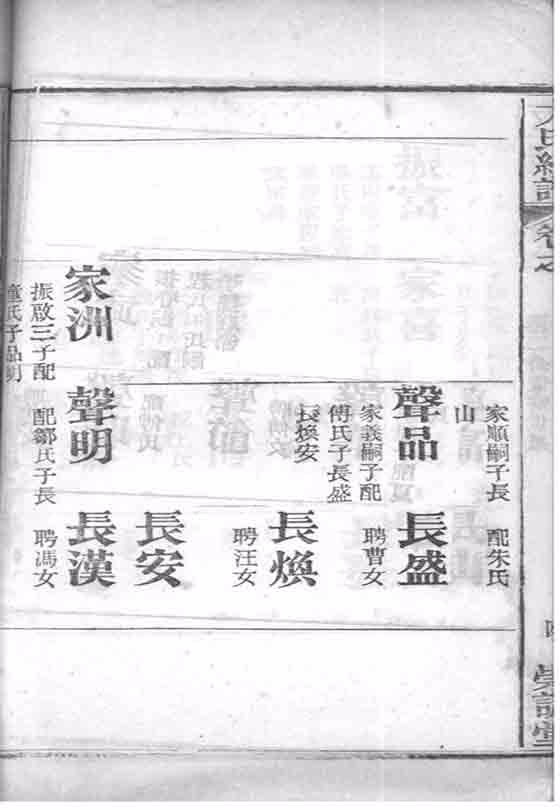 氏續譜
卷之
家順嗣子長
山
配朱氏
聲品
家義嗣子配
傅氏子長盛
長煥安
長盛
聘曹女
長煥
聘汪女
長安
家洲
振啟三子配
童氏子品明
聲明
配鄒氏子長
長漢
聘馮女